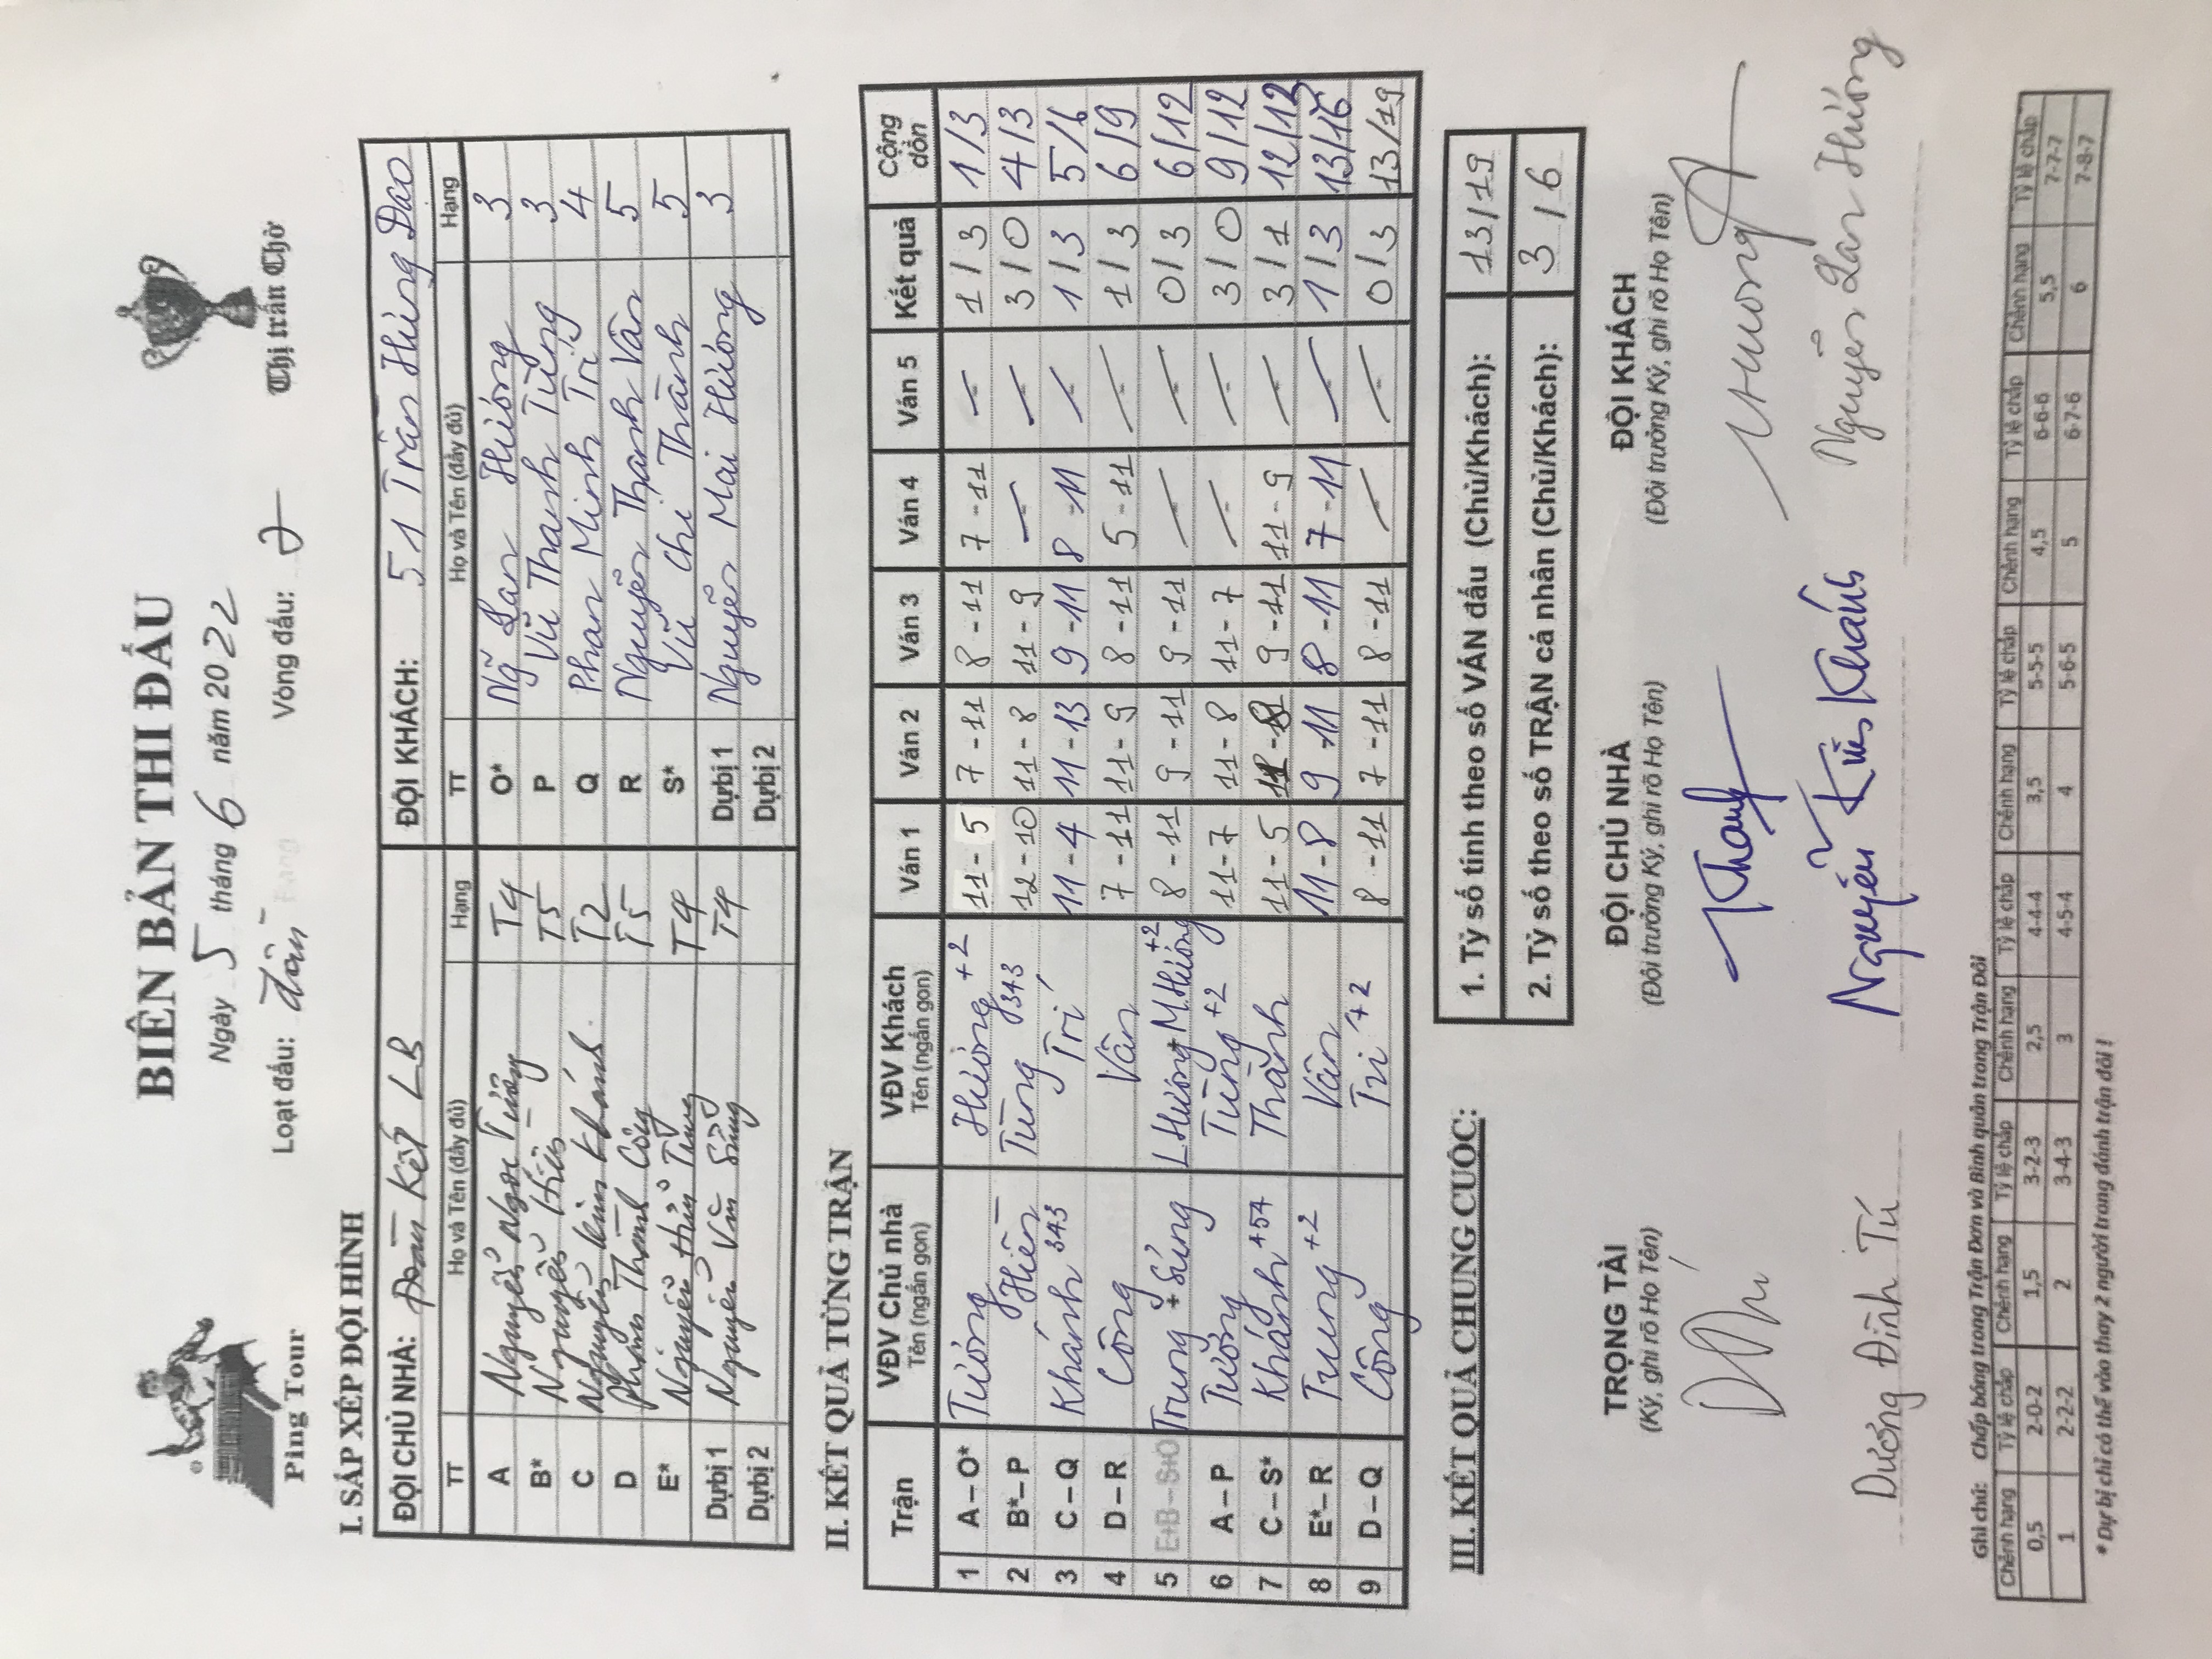 Ping Tour
BIÊN BẢN THI ĐẤU
Ngày 5 tháng 6 năm 2022
Loạt đấu: Vòng đấu: 2
Thị trấn Chờ
I. SẮP XẾP ĐỘI HÌNH
ĐỘI CHỦ NHÀ: Đoàn Kết LB ĐỘI KHÁCH: 51 Trần Hưng Đạo
TT Họ và Tên (đầy đủ) Hạng TT Họ và Tên (đầy đủ) Hạng
A Nguyễn Ngọc Tưởng T4 O* Ng Lan Hương 3
B* Nguyễn Hiền T5 P Vũ Thanh Tùng 3
C Nguyễn Kim Khánh T2 Q Phan Minh Trí 4
D Phạm Thành Công T5 R Nguyễn Thanh Vân 5
E* Nguyễn Hữu Trung T4 S* Vũ Chí Thành 5
Dự bị 1 Nguyễn Văn Sủng T4 Dự bị 1 Nguyễn Mai Hương 3
Dự bị 2 Dự bị 2
II. KẾT QUẢ TỪNG TRẬN
Trận VĐV Chủ nhà Tên (ngắn gọn) VĐV Khách Tên (ngắn gọn) Ván 1 Ván 2 Ván 3 Ván 4 Ván 5 Kết quả Cộng dồn
1 A – O* Tưởng Hương +2 11-5 7-11 8-11 7-11 — 1/3 1/3
2 B* – P Hiền Tùng 343 12-10 11-8 11-9 — — 3/0 4/3
3 C – Q Khánh 343 Trí 11-4 11-13 9-11 8-11 — 1/3 5/6
4 D – R Công Vân 7-11 11-9 8-11 5-11 — 1/3 6/9
5 E+B – S+O Trung + Sủng L Hương + M. Hương +2 8-11 9-11 9-11 — — 0/3 6/12
6 A – P Tưởng Tùng +2 11-7 11-8 11-7 — — 3/0 9/12
7 C – S* Khánh +54 Thành 11-5 9-11 11-9 — 3/1 12/13
8 E* – R Trung +2 Vân 11-8 9-11 8-11 7-11 — 1/3 13/16
9 D – Q Công Tri +2 8-11 7-11 8-11 — — 0/3 13/19
III. KẾT QUẢ CHUNG CUỘC:
1. Tỷ số tính theo số VÁN đấu (Chủ/Khách): 13/19
2. Tỷ số theo số TRẬN cá nhân (Chủ/Khách): 3/6
TRỌNG TÀI ĐỘI CHỦ NHÀ ĐỘI KHÁCH
(Ký, ghi rõ Họ Tên) (Đội trưởng Ký, ghi rõ Họ Tên) (Đội trưởng Ký, ghi rõ Họ Tên)
Hương
Dương Đình Tú Nguyễn Kim Khánh Nguyễn Lan Hương
Ghi chú: Chấp bóng trong Trận Đơn và Bình quân trong Trận Đôi
Chênh hạng Tỷ lệ chấp Chênh hạng Tỷ lệ chấp Chênh hạng Tỷ lệ chấp Chênh hạng Tỷ lệ chấp Chênh hạng Tỷ lệ chấp Chênh hạng Tỷ lệ chấp
0,5 2-0-2 1,5 3-2-3 2,5 4-4-4 3,5 5-5-5 4,5 6-6-6 5,5 7-7-7
1 2-2-2 2 3-4-3 3 4-5-4 4 5-6-5 5 6-7-6 6 7-8-7
* Dự bị chỉ có thể vào thay 2 người trong đánh trận đôi !